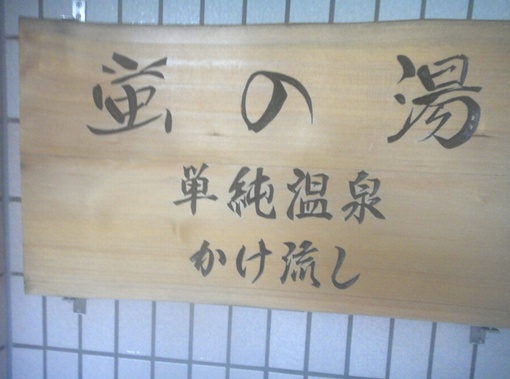 蛍の湯
単純温泉
かけ流し